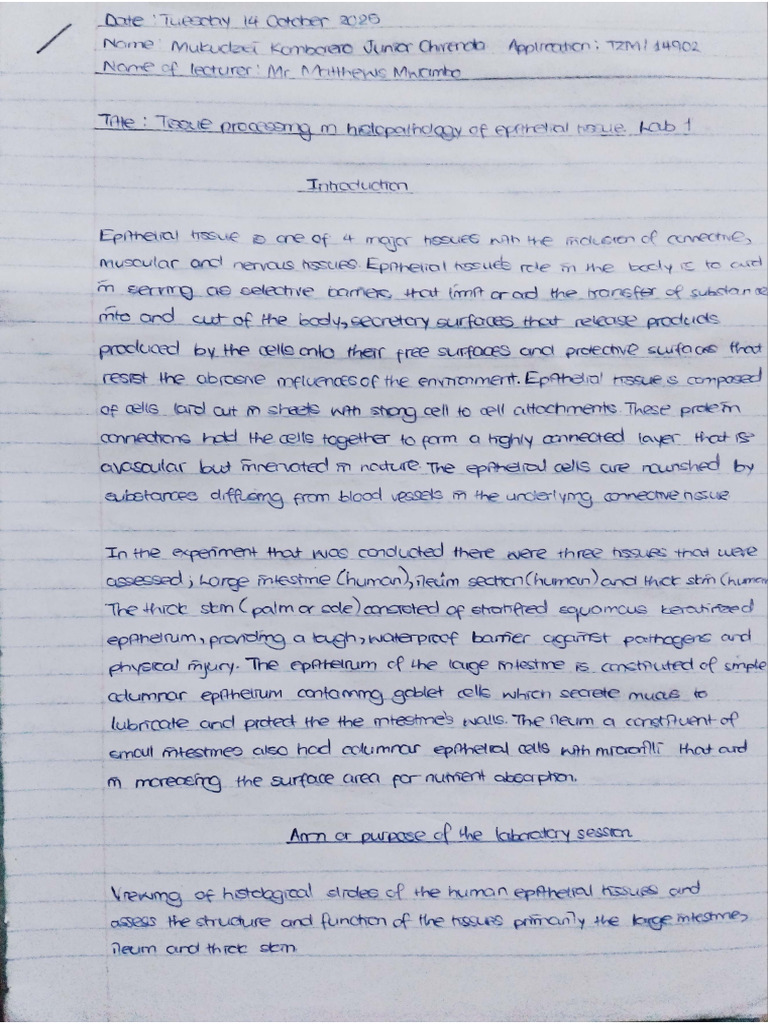 Date: Tuesday 14 October 2025
Name: Mukudzei Komborero Junior Chirenda Application: TZM/14902
Name of lecturer: Mr. Matthews Mwramba
Title: Tissue processing in histopathology of epithelial tissue. Lab 1
Introduction
Epithelial tissue is one of 4 major tissues with the inclusion of connective,
muscular and nervous tissues. Epithelial tissue's role in the body is to aid
in serving as selective barriers that limit or aid the transfer of substance
into and out of the body, secretory surfaces that release products
produced by the cells onto their free surfaces and protective surfaces that
resist the abrasive influences of the environment. Epithelial tissue is composed
of cells laid out in sheets with strong cell to cell attachments. These protein
connections hold the cells together to form a highly connected layer that is
avascular but innervated in nature. The epithelial cells are nourished by
substances diffusing from blood vessels in the underlying connective tissue
In the experiment that was conducted there were three tissues that were
assessed; Large intestine (human), ileum section (human) and thick skin (human
The thick skin (palm or sole) consisted of stratified squamous keratinized
epithelium, providing a tough, waterproof barrier against pathogens and
physical injury. The epithelium of the large intestine is constituted of simple
columnar epithelium containing goblet cells which secrete mucus to
lubricate and protect the the intestine's walls. The ileum a constituent of
small intestines also had columnar epithelial cells with microvilli that aid
in increasing the surface area for nutrient absorption.
Aim or purpose of the laboratory session
Viewing of histological slides of the human epithelial tissues and
assess the structure and function of the tissues primarily the large intestine,
ileum and thick skin